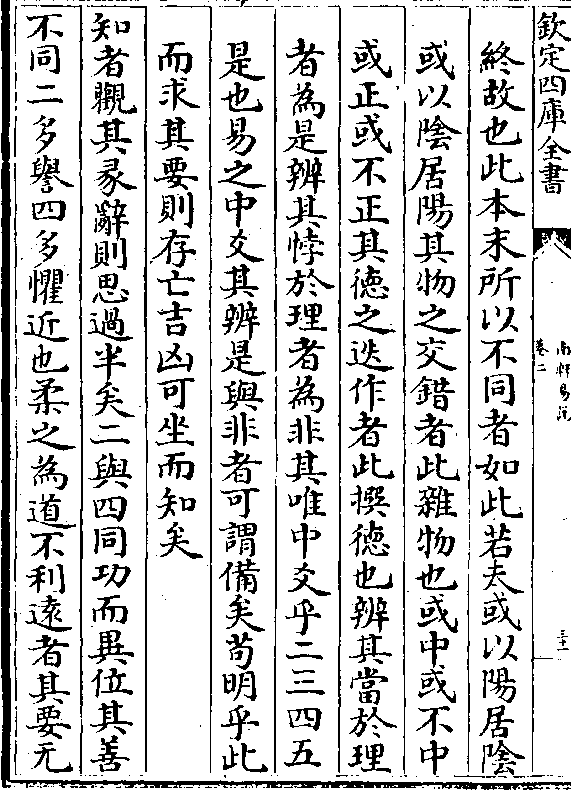 欽定四庫全書
南軒易說
卷二
終故也此本末所以不同者如此若夫或以陽居陰
或以陰居陽其物之交錯者此雜物也或中或不中
或正或不正其德之迭作者此撰德也辨其當於理
者為是辨其悖於理者為非其唯中爻乎二三四五
是也易之中爻其辨是與非者可謂備矣苟明乎此
而求其要則存亡吉凶可坐而知矣
知者觀其彖辭則思過半矣二與四同功而異位其善
不同二多譽四多懼近也柔之為道不利遠者其要无